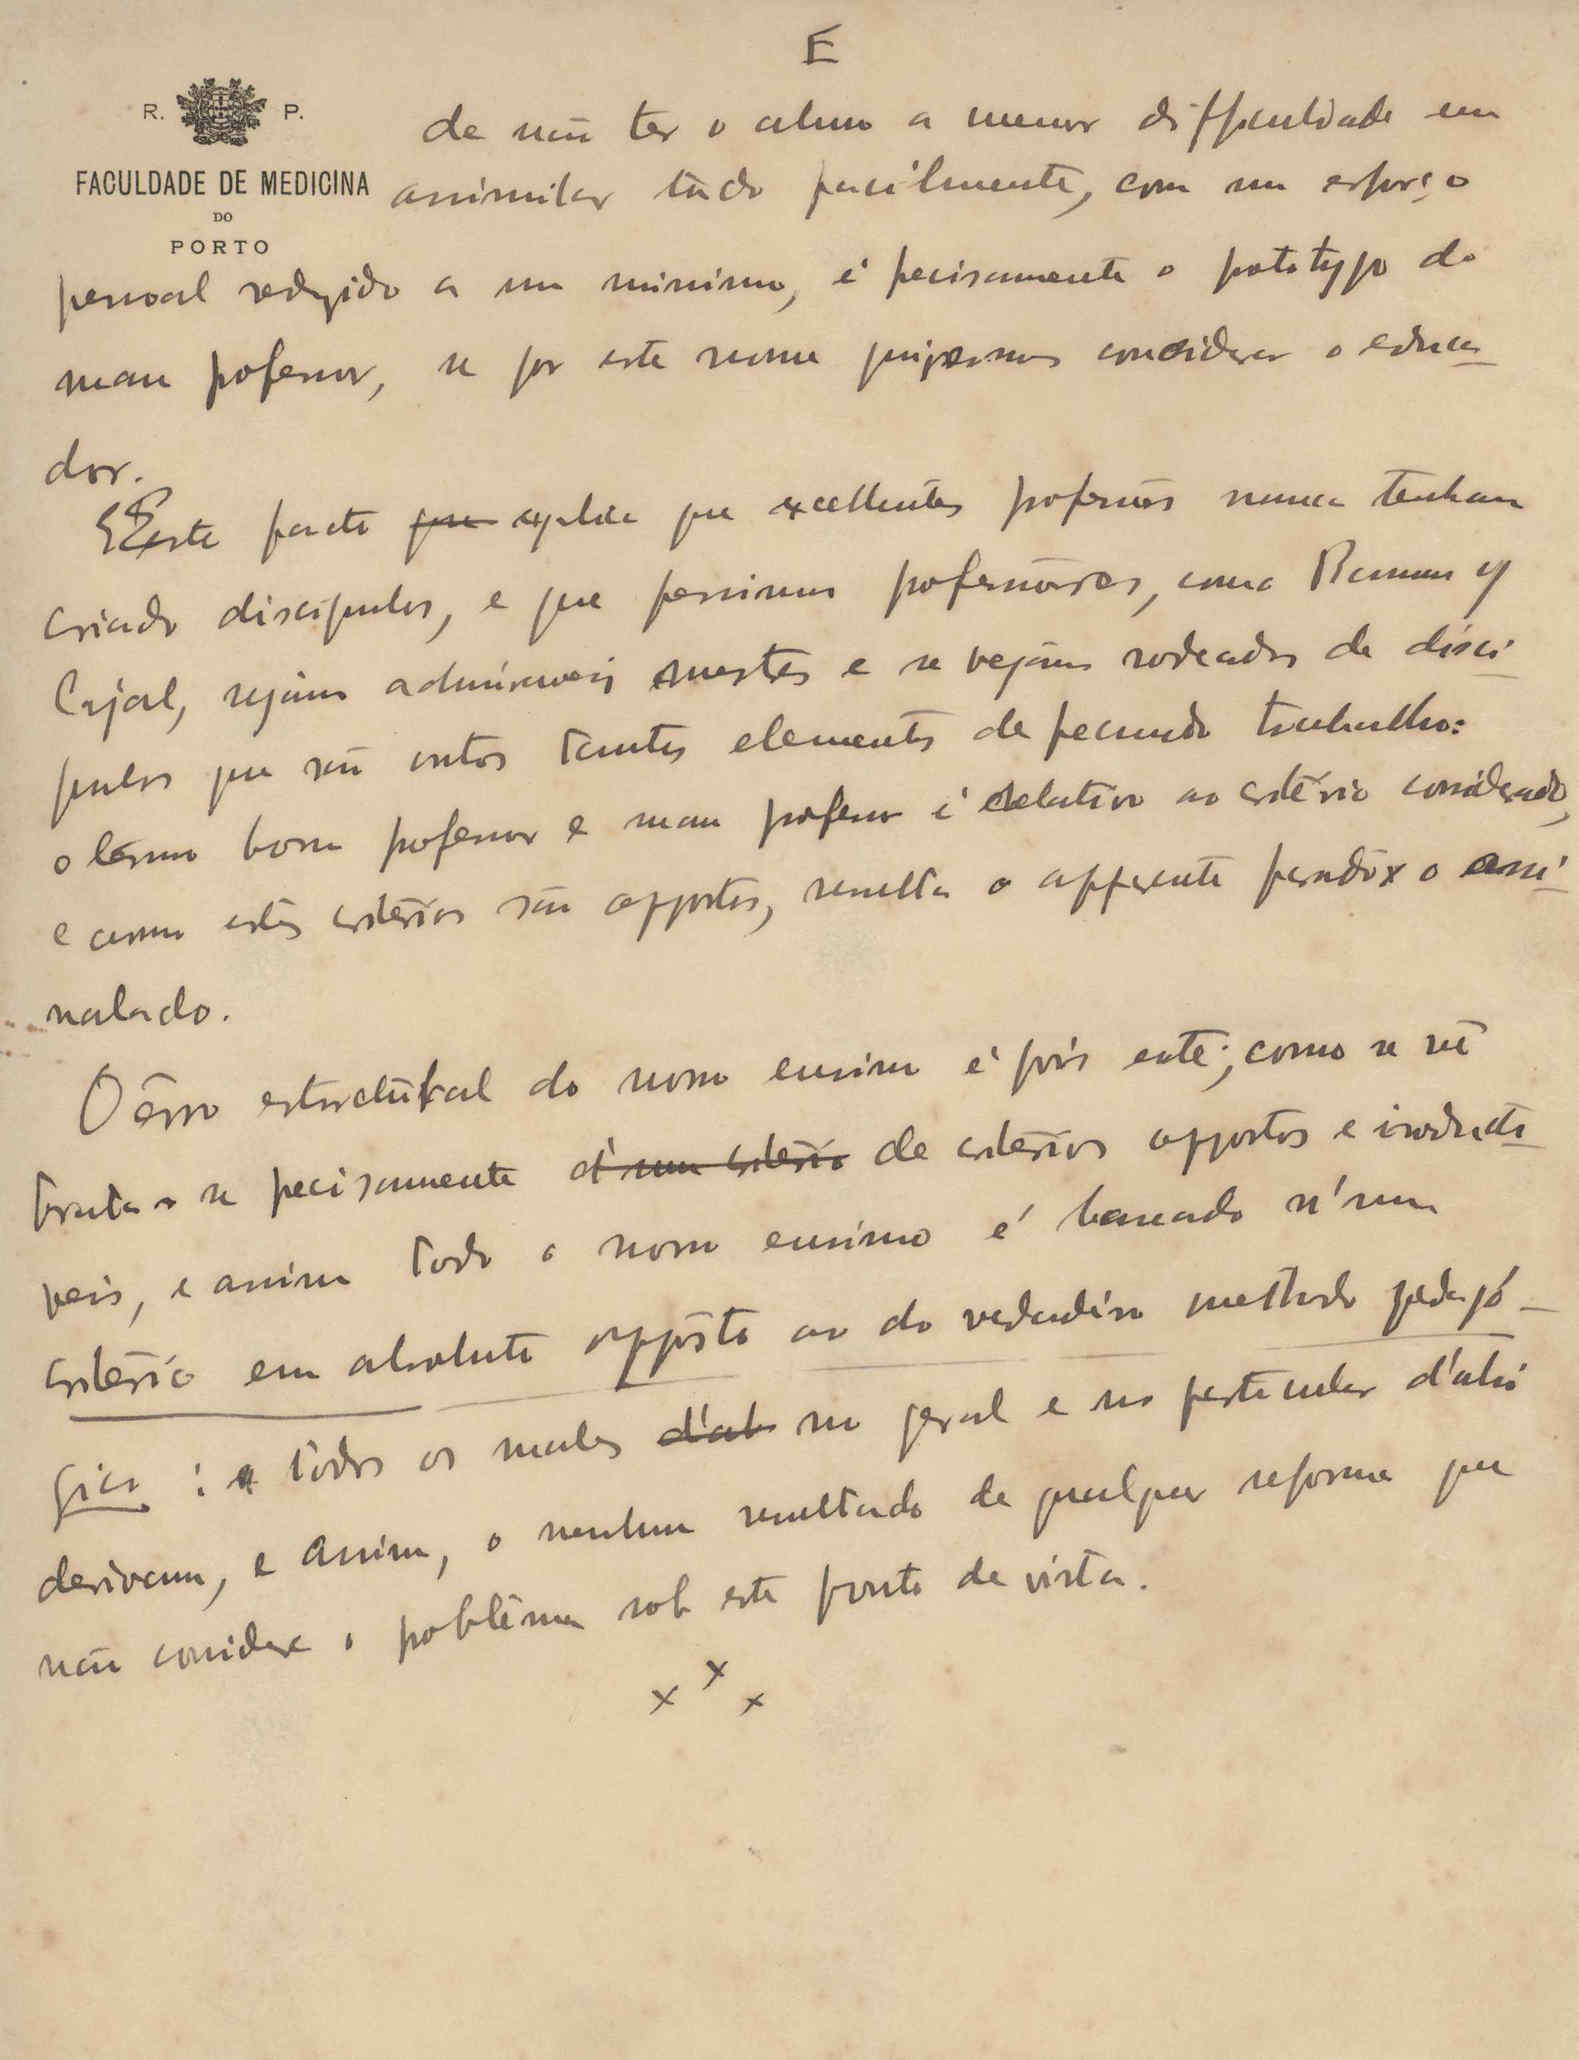 E
R. P.
FACULDADE DE MEDICINA
DO
PORTO
de não ter o aluno a menor difficuldade em
assimilar tudo facilmente, com um esforço
pessoal reduzido a um minimo, é precisamente o prototypo do
mau professor, se por este nome quizermos considerar o educa
dor.
Este facto que explica que excellentes professores nunca tenham
criado discipulos, e que pessimos professores, como Ramon y
Cajal, sejam admiraveis mestres e se vejam rodeados de disci
pulos que são outros tantos elementos de fecundo trabalho:
o termo bom professor e mau professor é relativo ao critério considerado,
e como estes critérios são oppostos, resulta o apparente paradoxo assi
nalado.
O êrro estructural do nosso ensino é pois este; como se vê
trata-se precisamente d'um critério de critérios oppostos e irreducti
veis, e assim todo o nosso ensino é baseado n'um
critério em absoluto oppôsto ao do verdadeiro methodo pedagó-
gico : todos os males d'ah no geral e no particular d'ahi
derivam, e assim, o nenhum resultado de qualquer reforma que
não considere o problêma sob este ponto de vista.
x x x